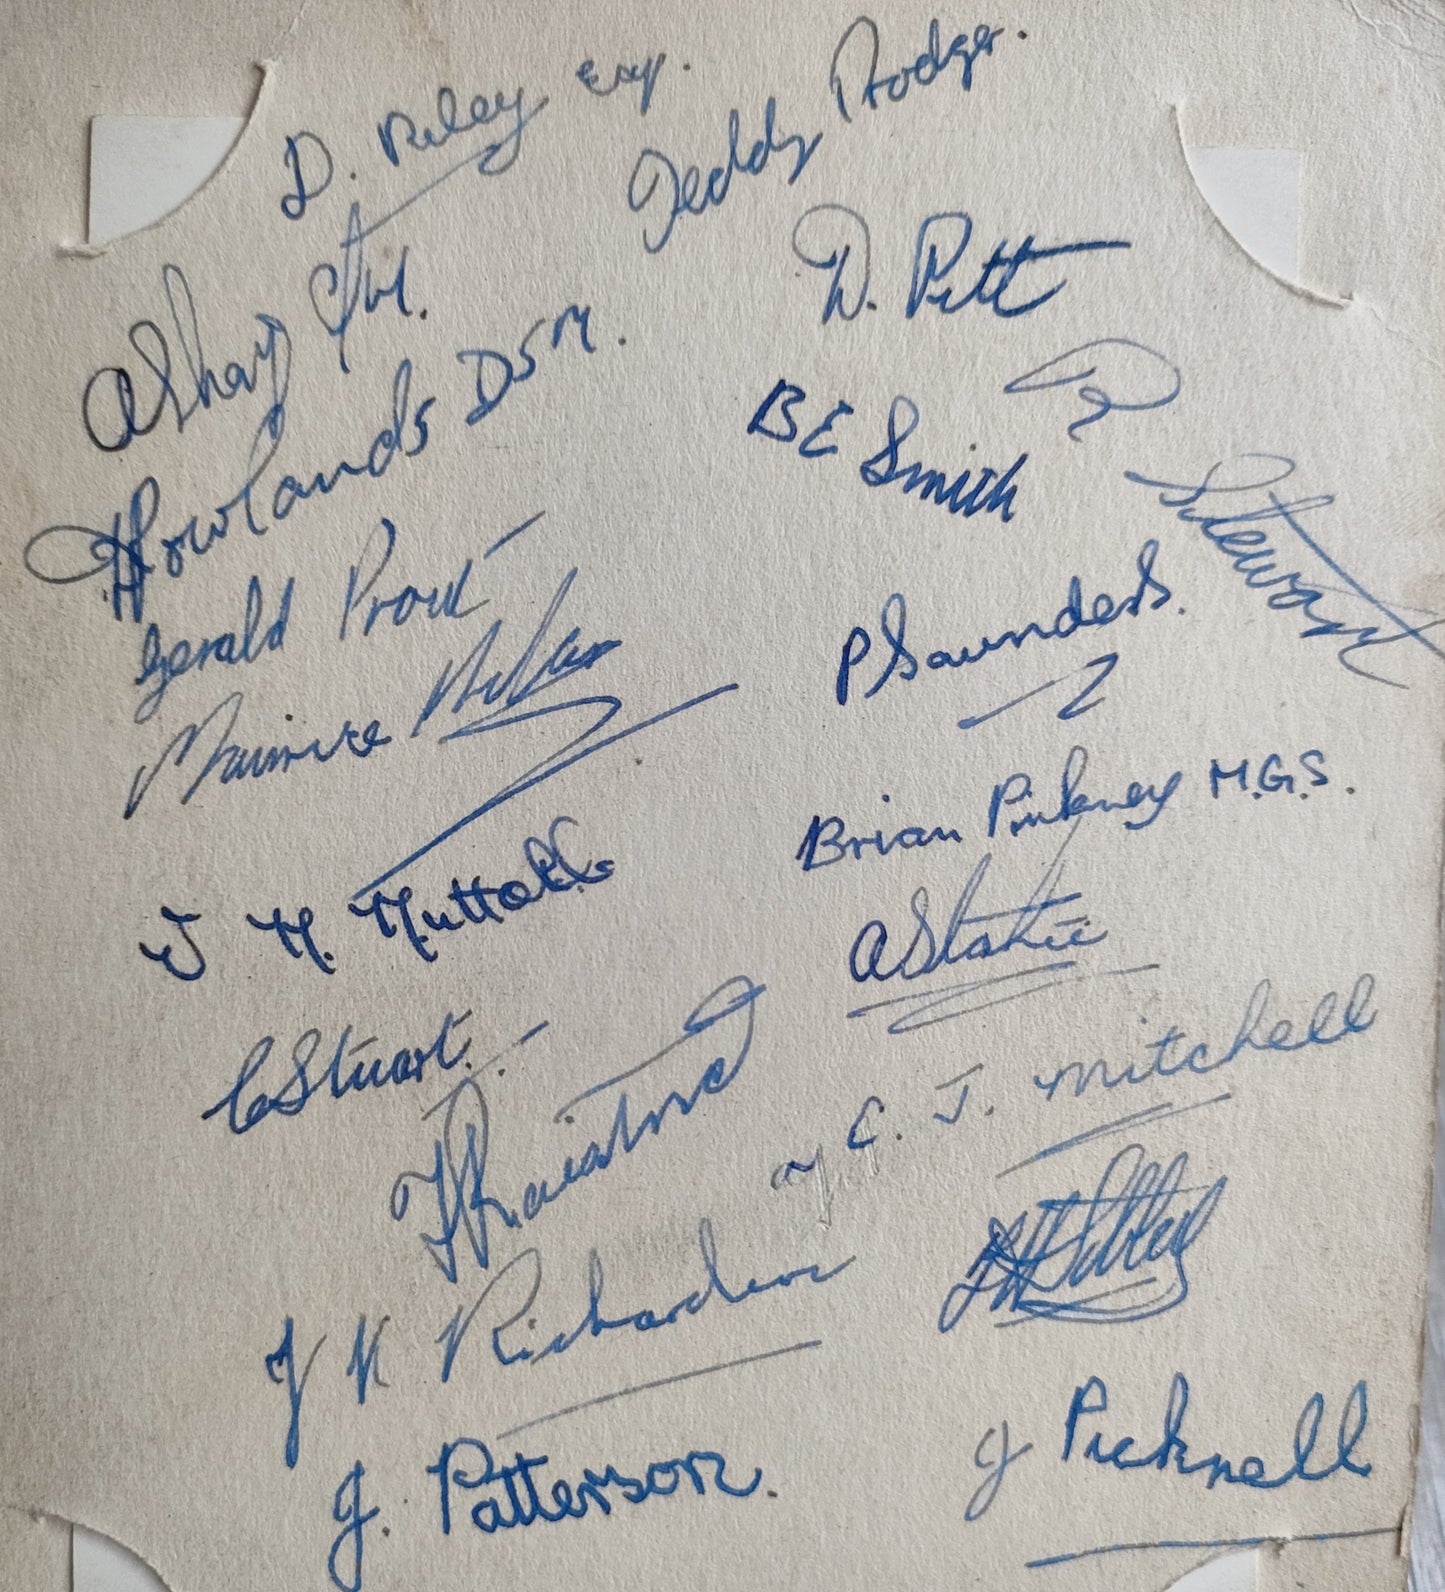 D. Riley Esq.
Teddy Rodger.
D. Pitt
A Shay
Howlands DSM.
B E Smith
R Stewart
Gerald Prout
P Saunders.
Maurice
Brian Pinkney M.G.S.
J M. Nuttall
A Stor
C Stuart.
C. J. Mitchell
J K Richardson
J. Patterson.
J Picknell